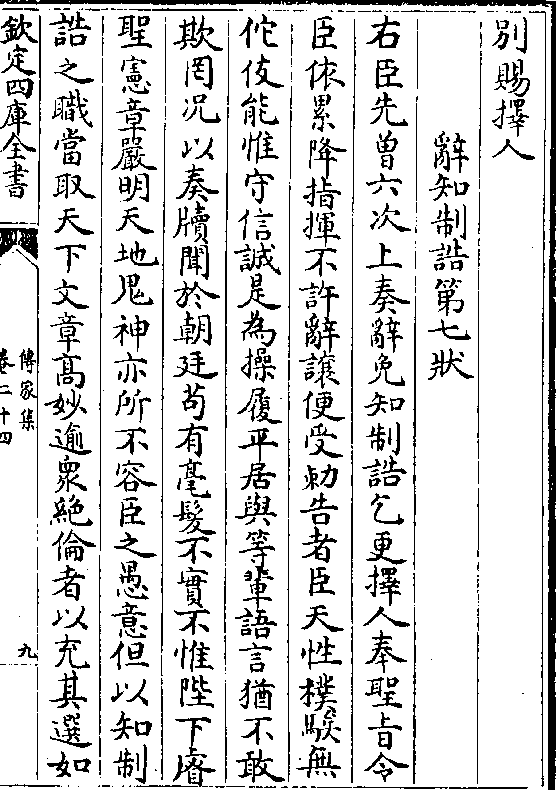 別賜擇人
辭知制誥第七狀
右臣先曾六次上奏辭免知制誥乞更擇人奉聖旨令
臣依累降指揮不許辭讓便受勑告者臣天性樸騃無
佗伎能惟守信誠是為操履平居與等輩語言猶不敢
欺罔况以奏牘聞於朝廷茍有毫髮不實不惟陛下睿
聖憲章嚴明天地鬼神亦所不容臣之愚意但以知制
誥之職當取天下文章髙妙逾衆絶倫者以充其選如
欽定四庫全書
傳家集
卷二十四
九